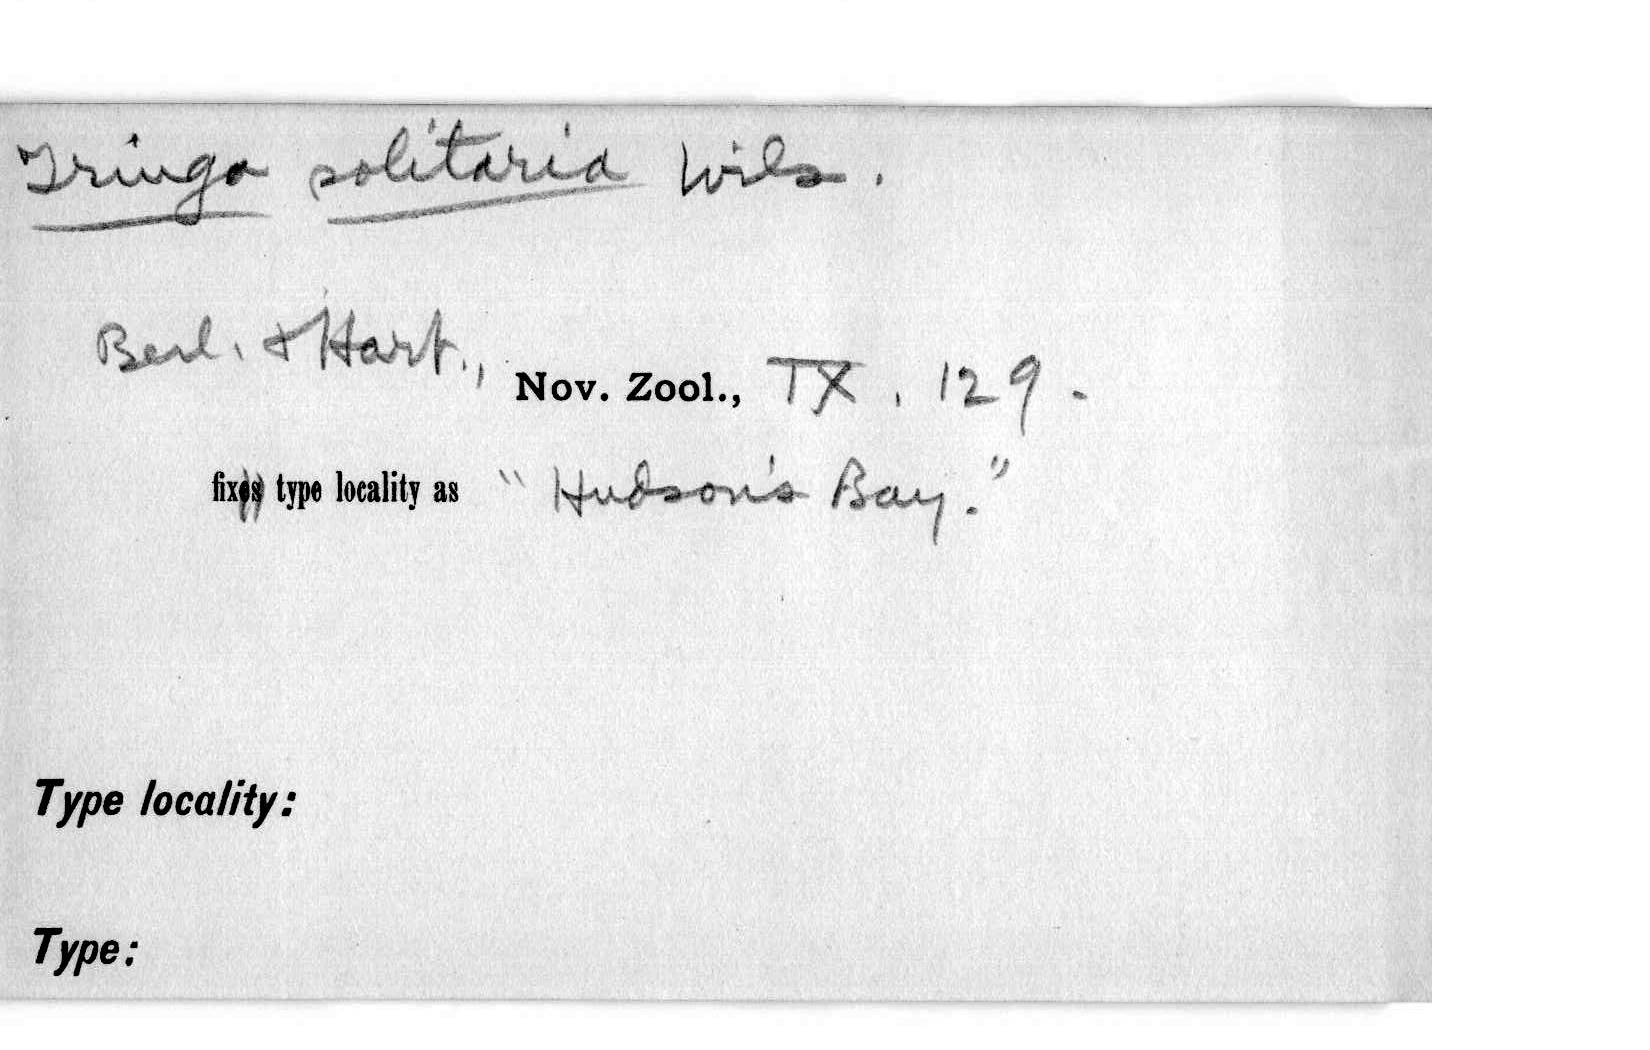 Tringa solitaria Wils.
Berl. & Hart., Nov. Zool., IX, 129.
fix type locality as "Hudson's Bay."
Type locality:
Type: